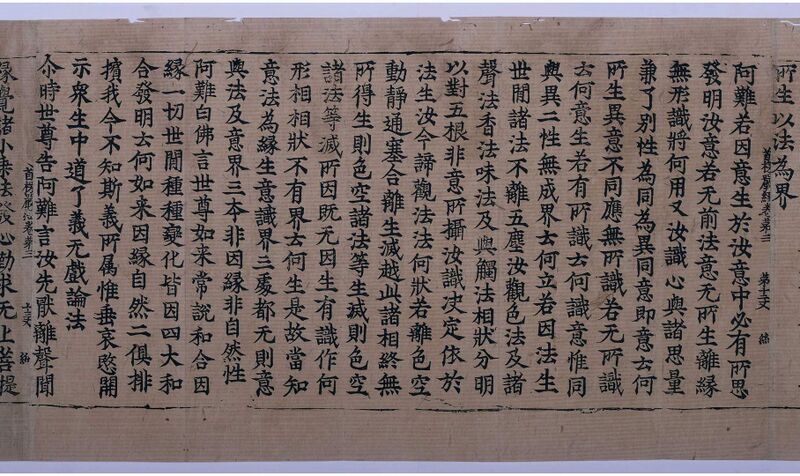 所生以法為界
首楞嚴經卷第三 第十五丈 絲
阿難若因意生於汝意中必有所思
發明汝意若无前法意无所生離緣
無形識將何用又汝識心與諸思量
兼了別性為同為異同意即意云何
所生異意不同應無所識若无所識
云何意生若有所識云何識意惟同
與異二性無成界云何立若因法生
世閒諸法不離五塵汝觀色法及諸
聲法香法味法及與觸法相狀分明
以對五根非意所攝汝識决定依於
法生汝今諦觀法法何狀若離色空
動静通塞合離生滅越此諸相終無
所得生則色空諸法等生滅則色空
諸法等滅所因既无因生有識作何
形相相狀不有界云何生是故當知
意法為緣生意識界三處都无則意
與法及意界三本非因緣非自然性
阿難白佛言世尊如來常說和合因
緣一切世閒種種變化皆因四大和
合發明云何如来因緣自然二俱排
擯我今不知斯義所属惟垂哀愍開
示衆生中道了義无戲論法
尒時世尊告阿難言汝先猒離聲聞
首楞嚴經卷第三 絲
緣覺諸小乘法發心勤求无上菩提